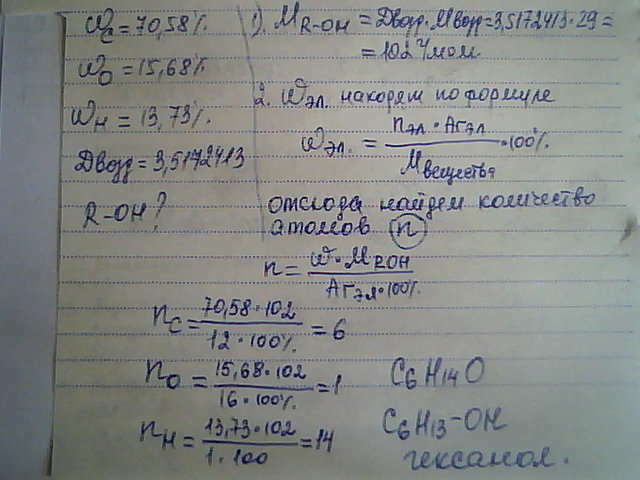 ω_C = 70,58%.
ω_O = 15,68%
ω_H = 13,73%.
Двозд = 3,5172413
R-OH?
1). M_R-OH = Двозд. Mвозд = 3,5172413·29 =
= 102 г/моль
2. ωэл. находят по формуле
ωэл. = nэл · Arэл / Mвещества · 100%.
отсюда найдем количество
атомов n
n = ω · M_ROH / Arэл · 100%.
n_C = 70,58 · 102 / 12 · 100%. = 6
n_O = 15,68 · 102 / 16 · 100%. = 1
n_H = 13,73 · 102 / 1 · 100 = 14
C₆H₁₄O
C₆H₁₃-OH
гексанол.